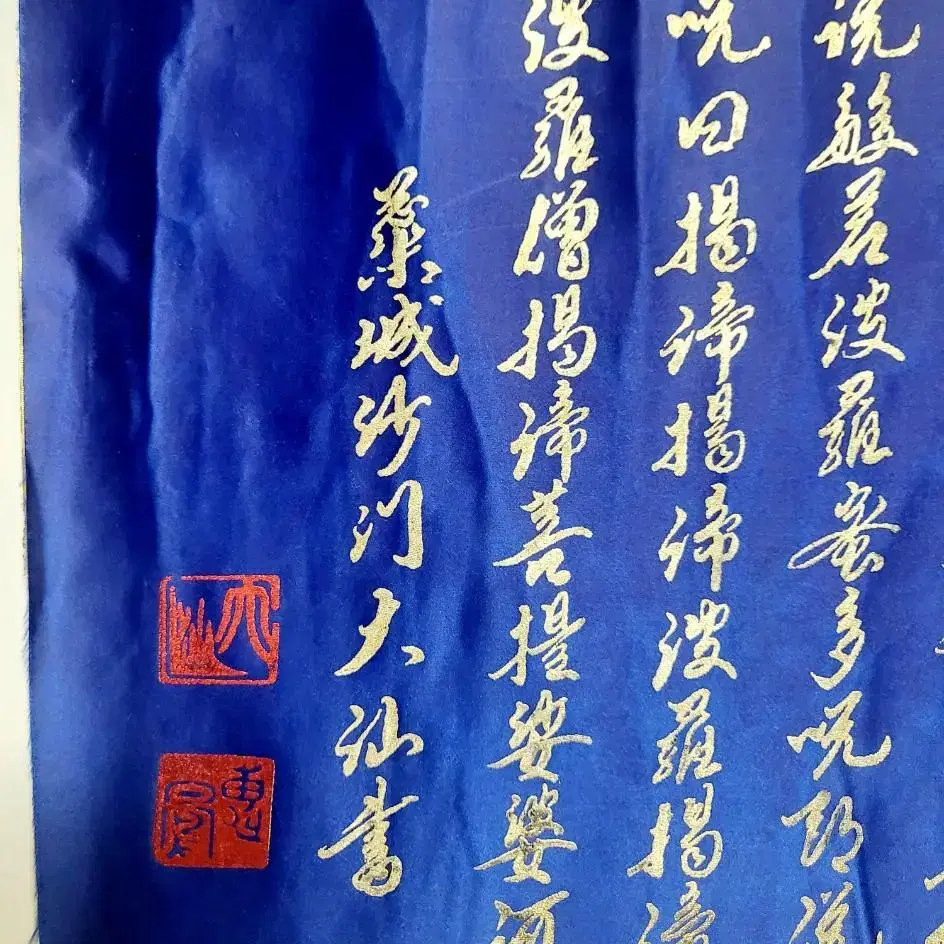 説般若波羅蜜多呪即説
呪曰揭諦揭諦波羅揭諦
波羅僧揭諦菩提娑婆訶
城沙门大汕書
大汕